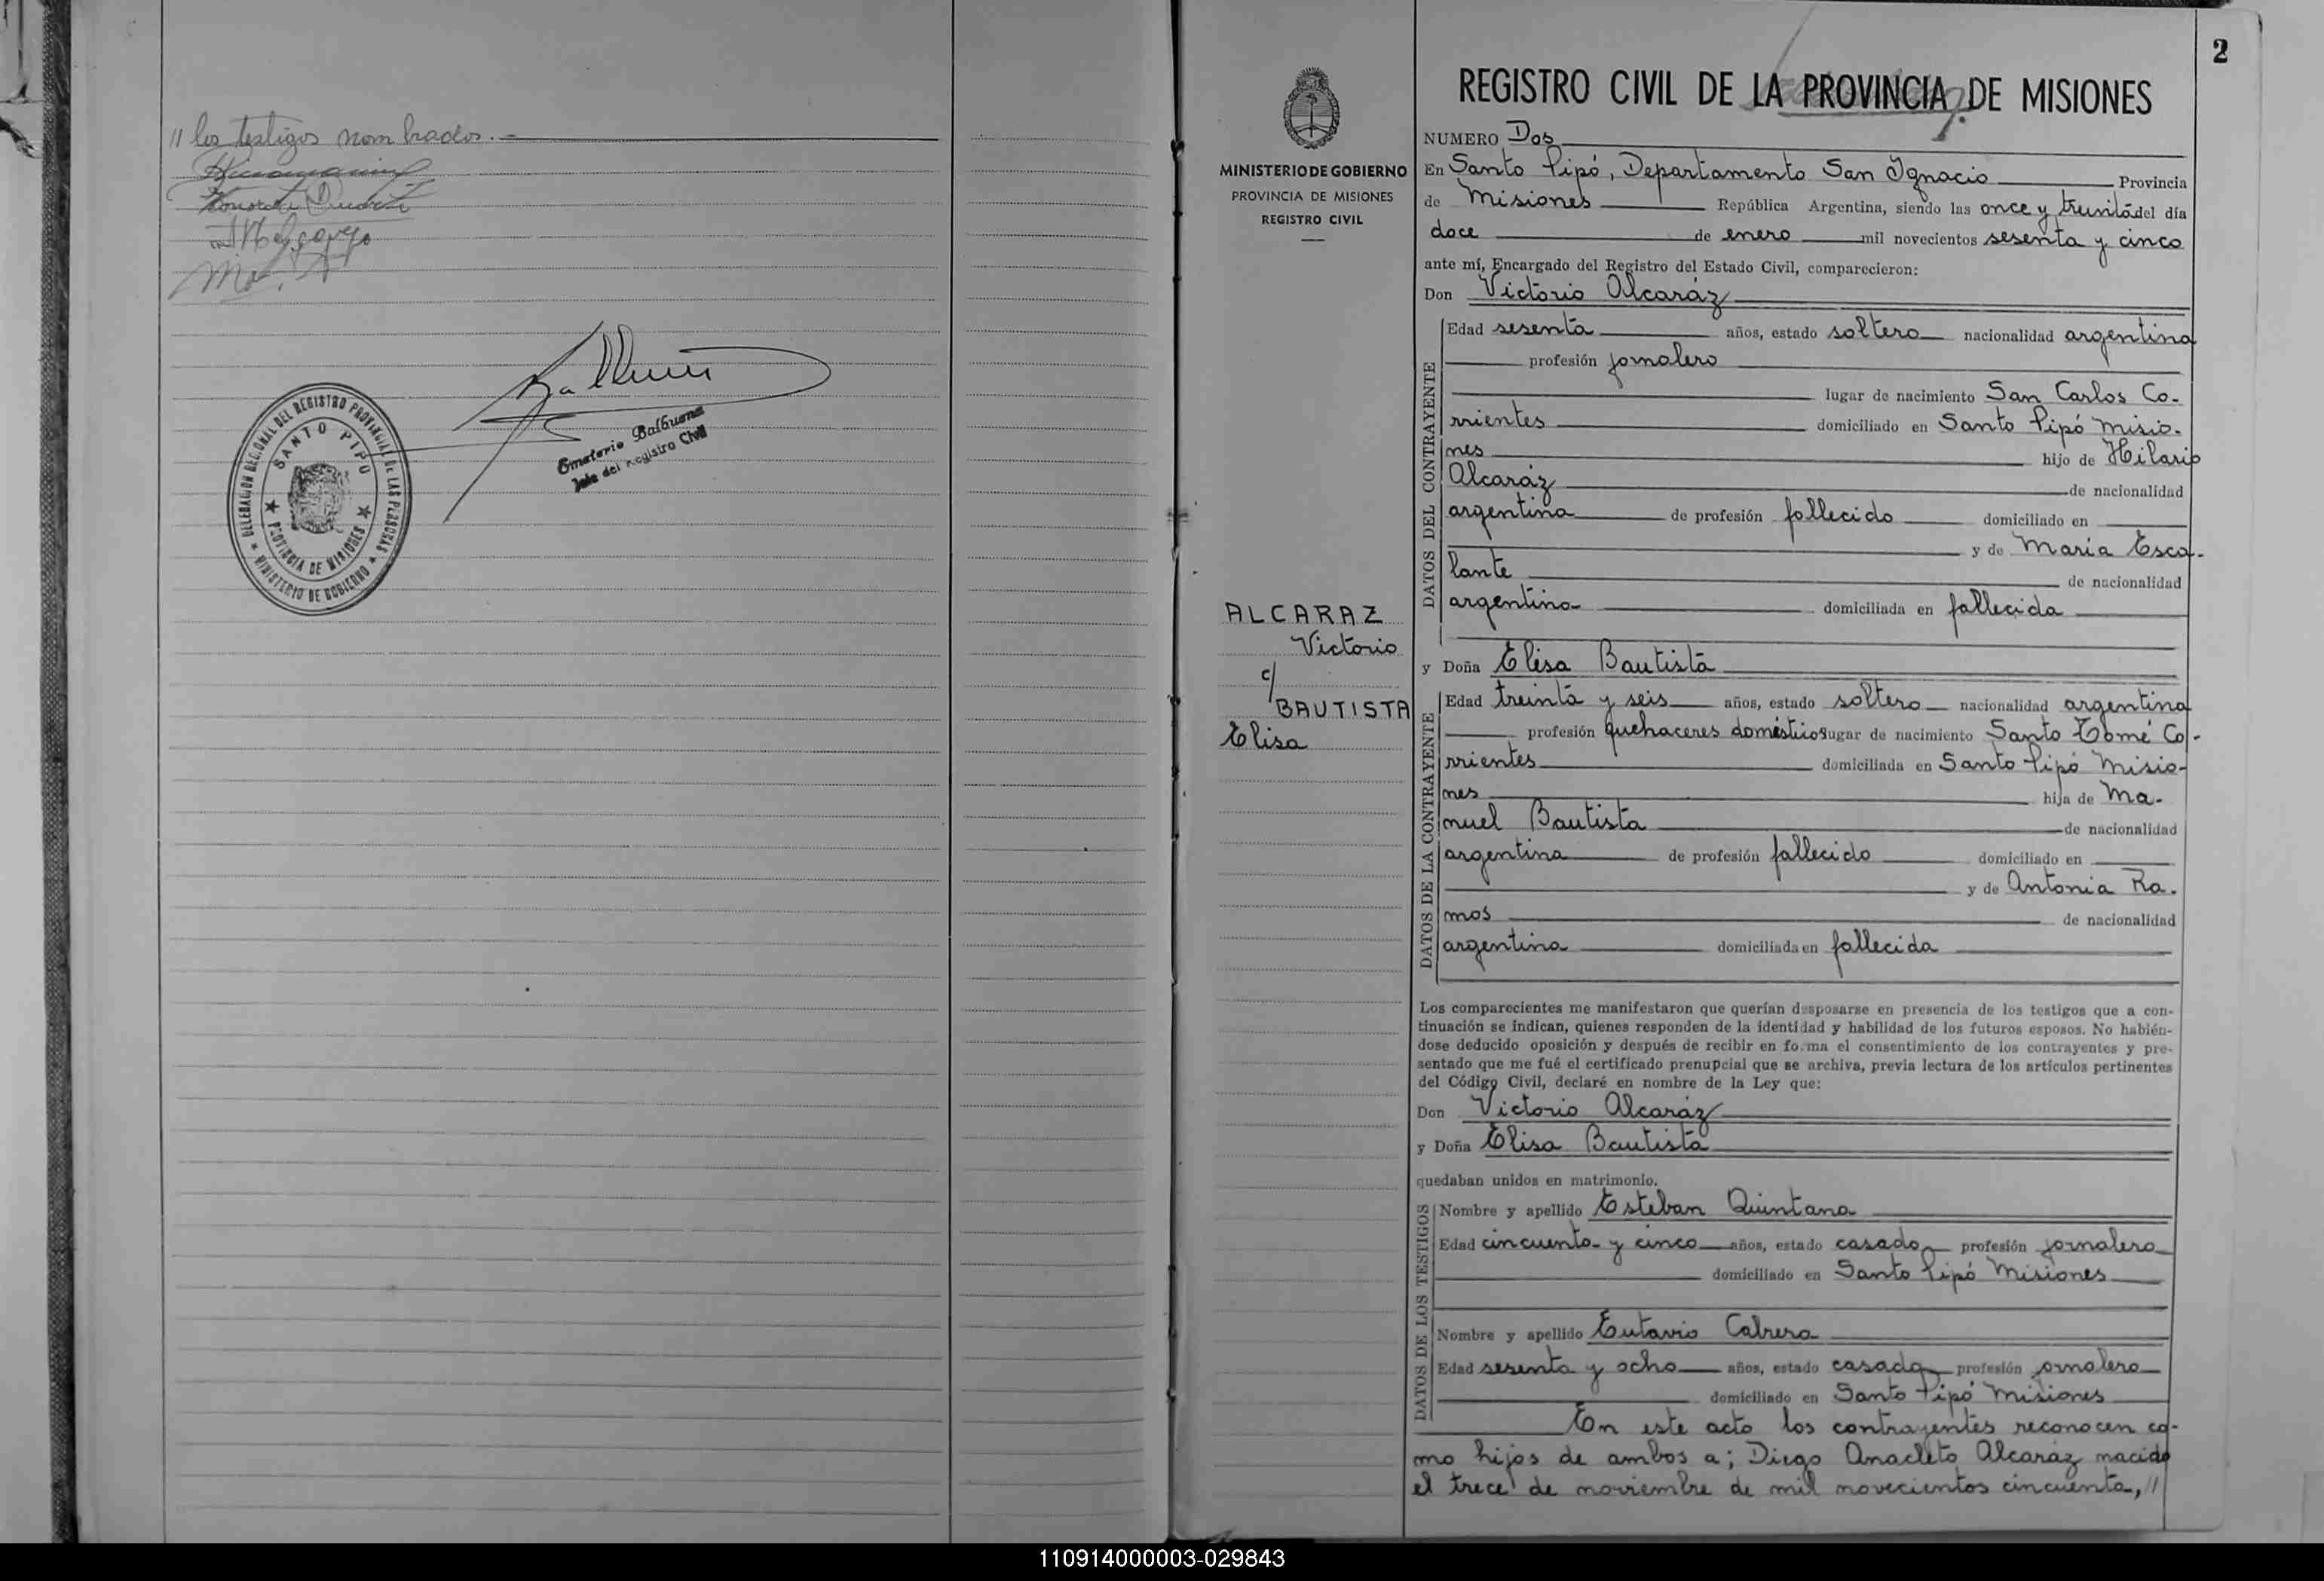 // los testigos nombrados.-
Balbuena
Ematerio Balbuena
Jefe del Registro Civil
DELEGACION REGIONAL DEL REGISTRO PROVINCIAL DE LAS PERSONAS
★ MINISTERIO DE GOBIERNO ★
SANTO PIPO
★ PROVINCIA DE MISIONES ★
2
REGISTRO CIVIL DE LA PROVINCIA DE MISIONES
MINISTERIO DE GOBIERNO
PROVINCIA DE MISIONES
REGISTRO CIVIL
ALCARAZ
Victorio
c/
BAUTISTA
Elisa
NUMERO Dos
En Santo Pipó, Departamento San Ignacio Provincia
de Misiones República Argentina, siendo las once y treinta del día
doce de enero mil novecientos sesenta y cinco
ante mí, Encargado del Registro del Estado Civil, comparecieron:
Don Victorio Alcaráz
DATOS DEL CONTRAYENTE
Edad sesenta años, estado soltero nacionalidad argentina
profesión jornalero
lugar de nacimiento San Carlos Co-
rrientes domiciliado en Santo Pipó Misio-
nes hijo de Hilario
Alcaráz de nacionalidad
argentina de profesión fallecido domiciliado en
y de María Esca-
lante de nacionalidad
argentina domiciliada en fallecida
y Doña Elisa Bautista
DATOS DE LA CONTRAYENTE
Edad treinta y seis años, estado soltero nacionalidad argentina
profesión quehaceres domésticos lugar de nacimiento Santo Tomé Co-
rrientes domiciliada en Santo Pipó Misio-
nes hija de Ma-
nuel Bautista de nacionalidad
argentina de profesión fallecido domiciliado en
y de Antonia Ra-
mos de nacionalidad
argentina domiciliada en fallecida
Los comparecientes me manifestaron que querían desposarse en presencia de los testigos que a con-
tinuación se indican, quienes responden de la identidad y habilidad de los futuros esposos. No habién-
dose deducido oposición y después de recibir en forma el consentimiento de los contrayentes y pre-
sentado que me fué el certificado prenupcial que se archiva, previa lectura de los artículos pertinentes
del Código Civil, declaré en nombre de la Ley que:
Don Victorio Alcaráz
y Doña Elisa Bautista
quedaban unidos en matrimonio.
DATOS DE LOS TESTIGOS
Nombre y apellido Esteban Quintana
Edad cincuenta y cinco años, estado casado profesión jornalero
domiciliado en Santo Pipó Misiones
Nombre y apellido Eutavio Cabrera
Edad sesenta y ocho años, estado casado profesión jornalero
domiciliado en Santo Pipó Misiones
En este acto los contrayentes reconocen co-
mo hijos de ambos a; Diego Anacleto Alcaráz nacido
el trece de noviembre de mil novecientos cincuenta, //
110914000003-029843